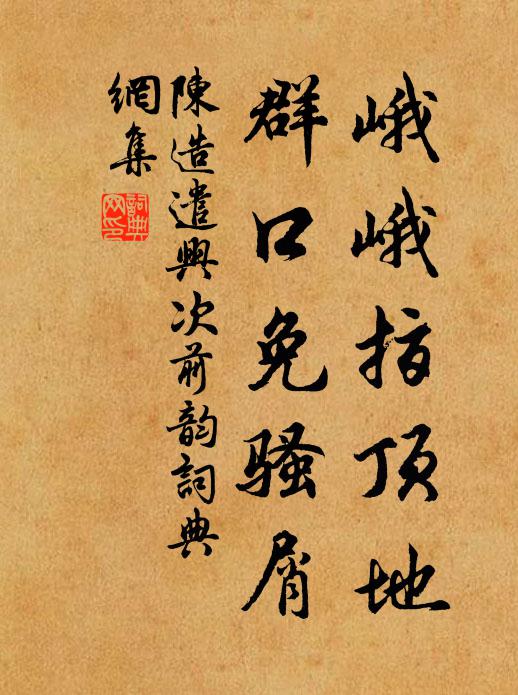 峨峨指頂地
群口免騷屑
陳造遣興次前韵詞典
網集
詞典
网印